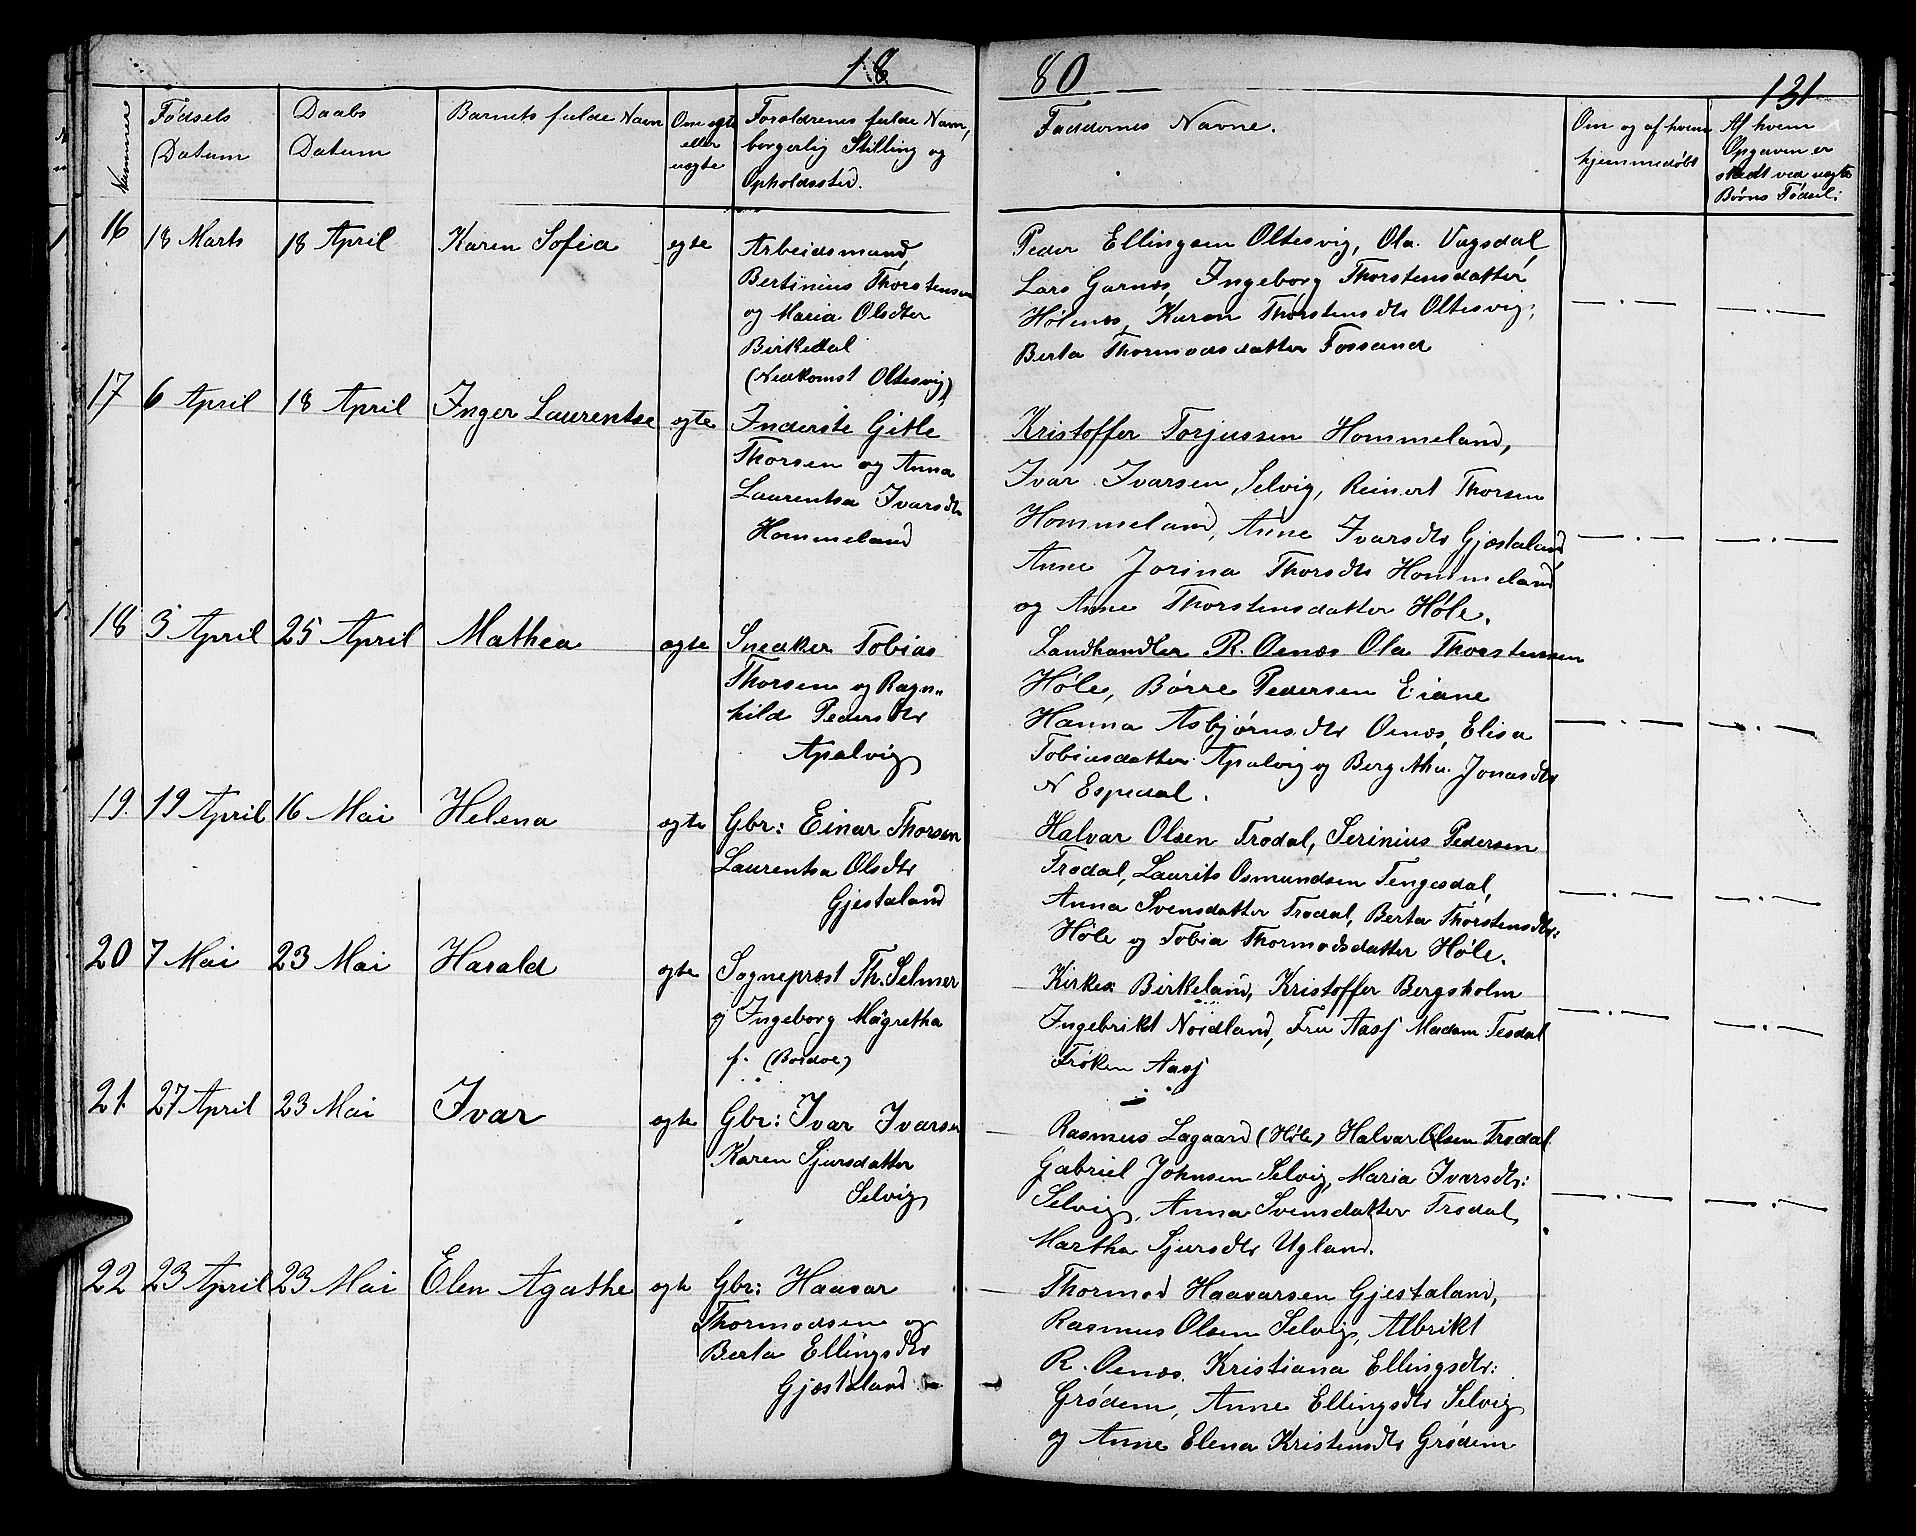 1880
131
Nummer
Fødsels Datum
Daabs Datum
Barnets fulde Navn
Om ægte eller uægte
Forældrenes fulde Navn, borgerlig Stilling og Opholdssted.
Faddernes Navne.
Om og af hvem hjemmedøbt
Af hvem Opgaven er skedt ved uægte Børns Fødsel:
16 18 Marts 18 April Karen Sofia ægte
Arbeidsmand,
Bertinius Thorstensen
og Maria Olsdter
Birkedal
(Nedkomst Oltesvig)
Peder Ellingsen Oltesvig, Ola Vagsdal,
Lars Garnæs, Ingeborg Thorstensdatter
Hølenæs, Karen Thorstensdtr Oltesvig,
Berta Thormodsdatter Fossand
17 6 April 18 April Inger Laurentse ægte
Inderste Gitle
Thorsen og Anna
Laurentsa Ivarsdtr
Hommeland
Kristoffer Torjussen Hommeland,
Ivar Ivarsen, Selvig, Reinert Thorsen
Hommeland, Anne Ivarsdtr Gjæstaland
Anne Jorina Thorsdtr Hommeland
og Anne Thorstensdatter Høle.
18 3 April 25 April Mathea ægte
Snedker Tobias
Thorsen og Ragn-
hild Pedersdtr
Apalvig
Landhandler R. Oenæs Ola Thorstensen
Høle, Børre Pedersen Eiane
Hanna Asbjørnsdtr Oenæs, Elisa
Tobiasdatter Apalvig og Berg Jonasdtr
N Espedal.
19. 19 April 16 Mai Helena ægte
Gbr: Einar Thorsen
Laurentsa Olsdtr
Gjestaland
Halvar Olsen Trodal, Serinius Pedersen
Trodal, Laurits Osmundsen Tengesdal,
Anna Svensdatter Trodal, Berta Thorstensdtr:
Høle og Tobia Thormodsdatter Høle.
20 7 Mai 23 Mai Harald ægte
Sognepræst Th. Selmer
og Ingeborg Magretha
f. (Bordoe)
Kirkes. Birkeland, Kristoffer Bergsholm
Ingebrikt Nordland, Fru Aasf Madam Tesdal
Frøken Aasf
21 27 April 23 Mai Ivar ægte
Gbr: Ivar Ivarsen
Karen Sjursdatter
Selvig
Rasmus Lagaard (Høle) Halvar Olsen Trodal
Gabriel Johnsen Selvig, Maria Ivarsdtr:
Selvig, Anna Svensdatter Trodal,
Martha Sjursdtr Ugland.
22 23 April 23 Mai Elen Agathe ægte
Gbr: Haavar
Thormodsen og
Berta Ellingsdtr
Gjæstaland
Thormod Haavarsen Gjestaland,
Rasmus Olsen Selvig, Albrikt
R. Oenæs, Kristiana Ellingsdtr:
Grødem, Anne Ellingsdtr Selvig
og Anne Elena Kristensdtr Grødem